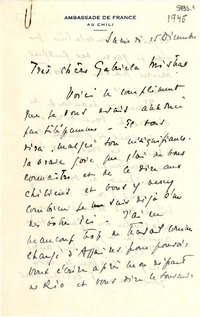 5BB.1
1945
AMBASSADE DE FRANCE
AU CHILI
Samedi 15 Décembre
Très chère Gabriela Mistral
Voici le compliment
que je vous avais annoncé
par télégramme. Et vous
dira, malgré son insignifiance
la vraie joie que j'ai de vous
connaître et de le dire aux
chiliens et vous y verrez
combien je me sais déjà l'un
des vôtres ici. J'ai eu
beaucoup trop de travail comme
chargé d'Affaires pour pouvoir
vous écrire après mon départ
de Rio et vous dire le souvenir